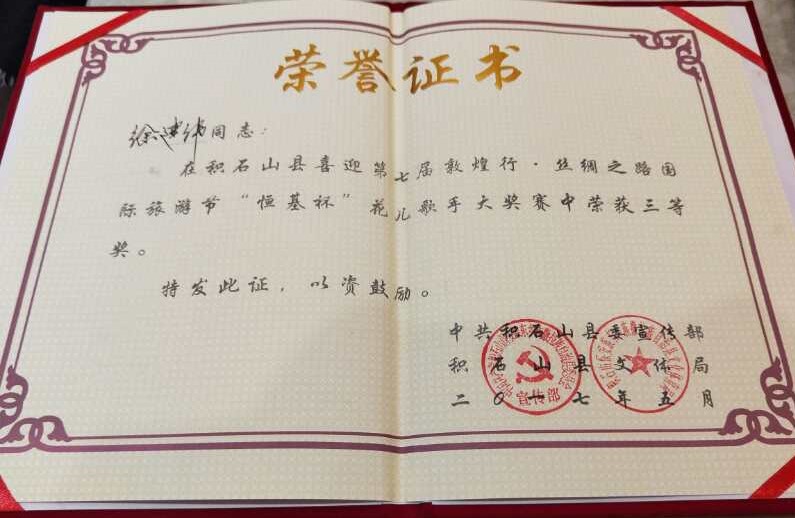 荣誉证书
徐建纬同志：
在积石山县喜迎第七届敦煌行·丝绸之路国
际旅游节“恒基杯”花儿歌手大奖赛中荣获三等
奖。
特发此证，以资鼓励。
中共积石山县委宣传部
积石山县文体局
二〇一七年五月
宣传部